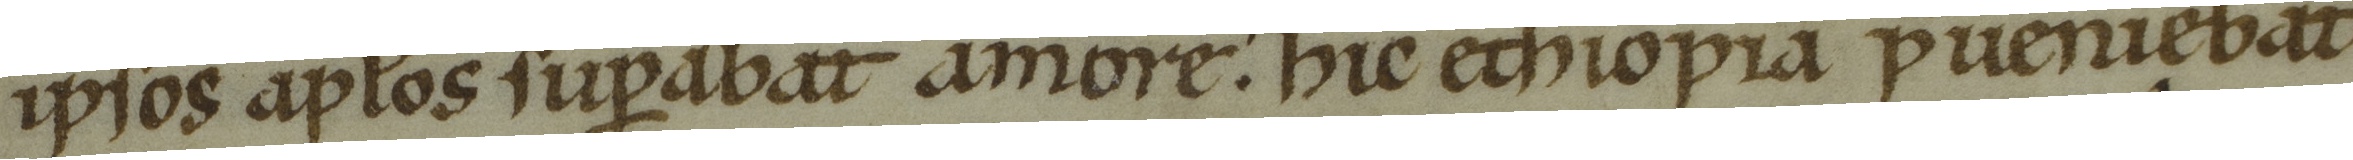 ipsos aplos suꝑabat amore. hic ethiopia pueniebat